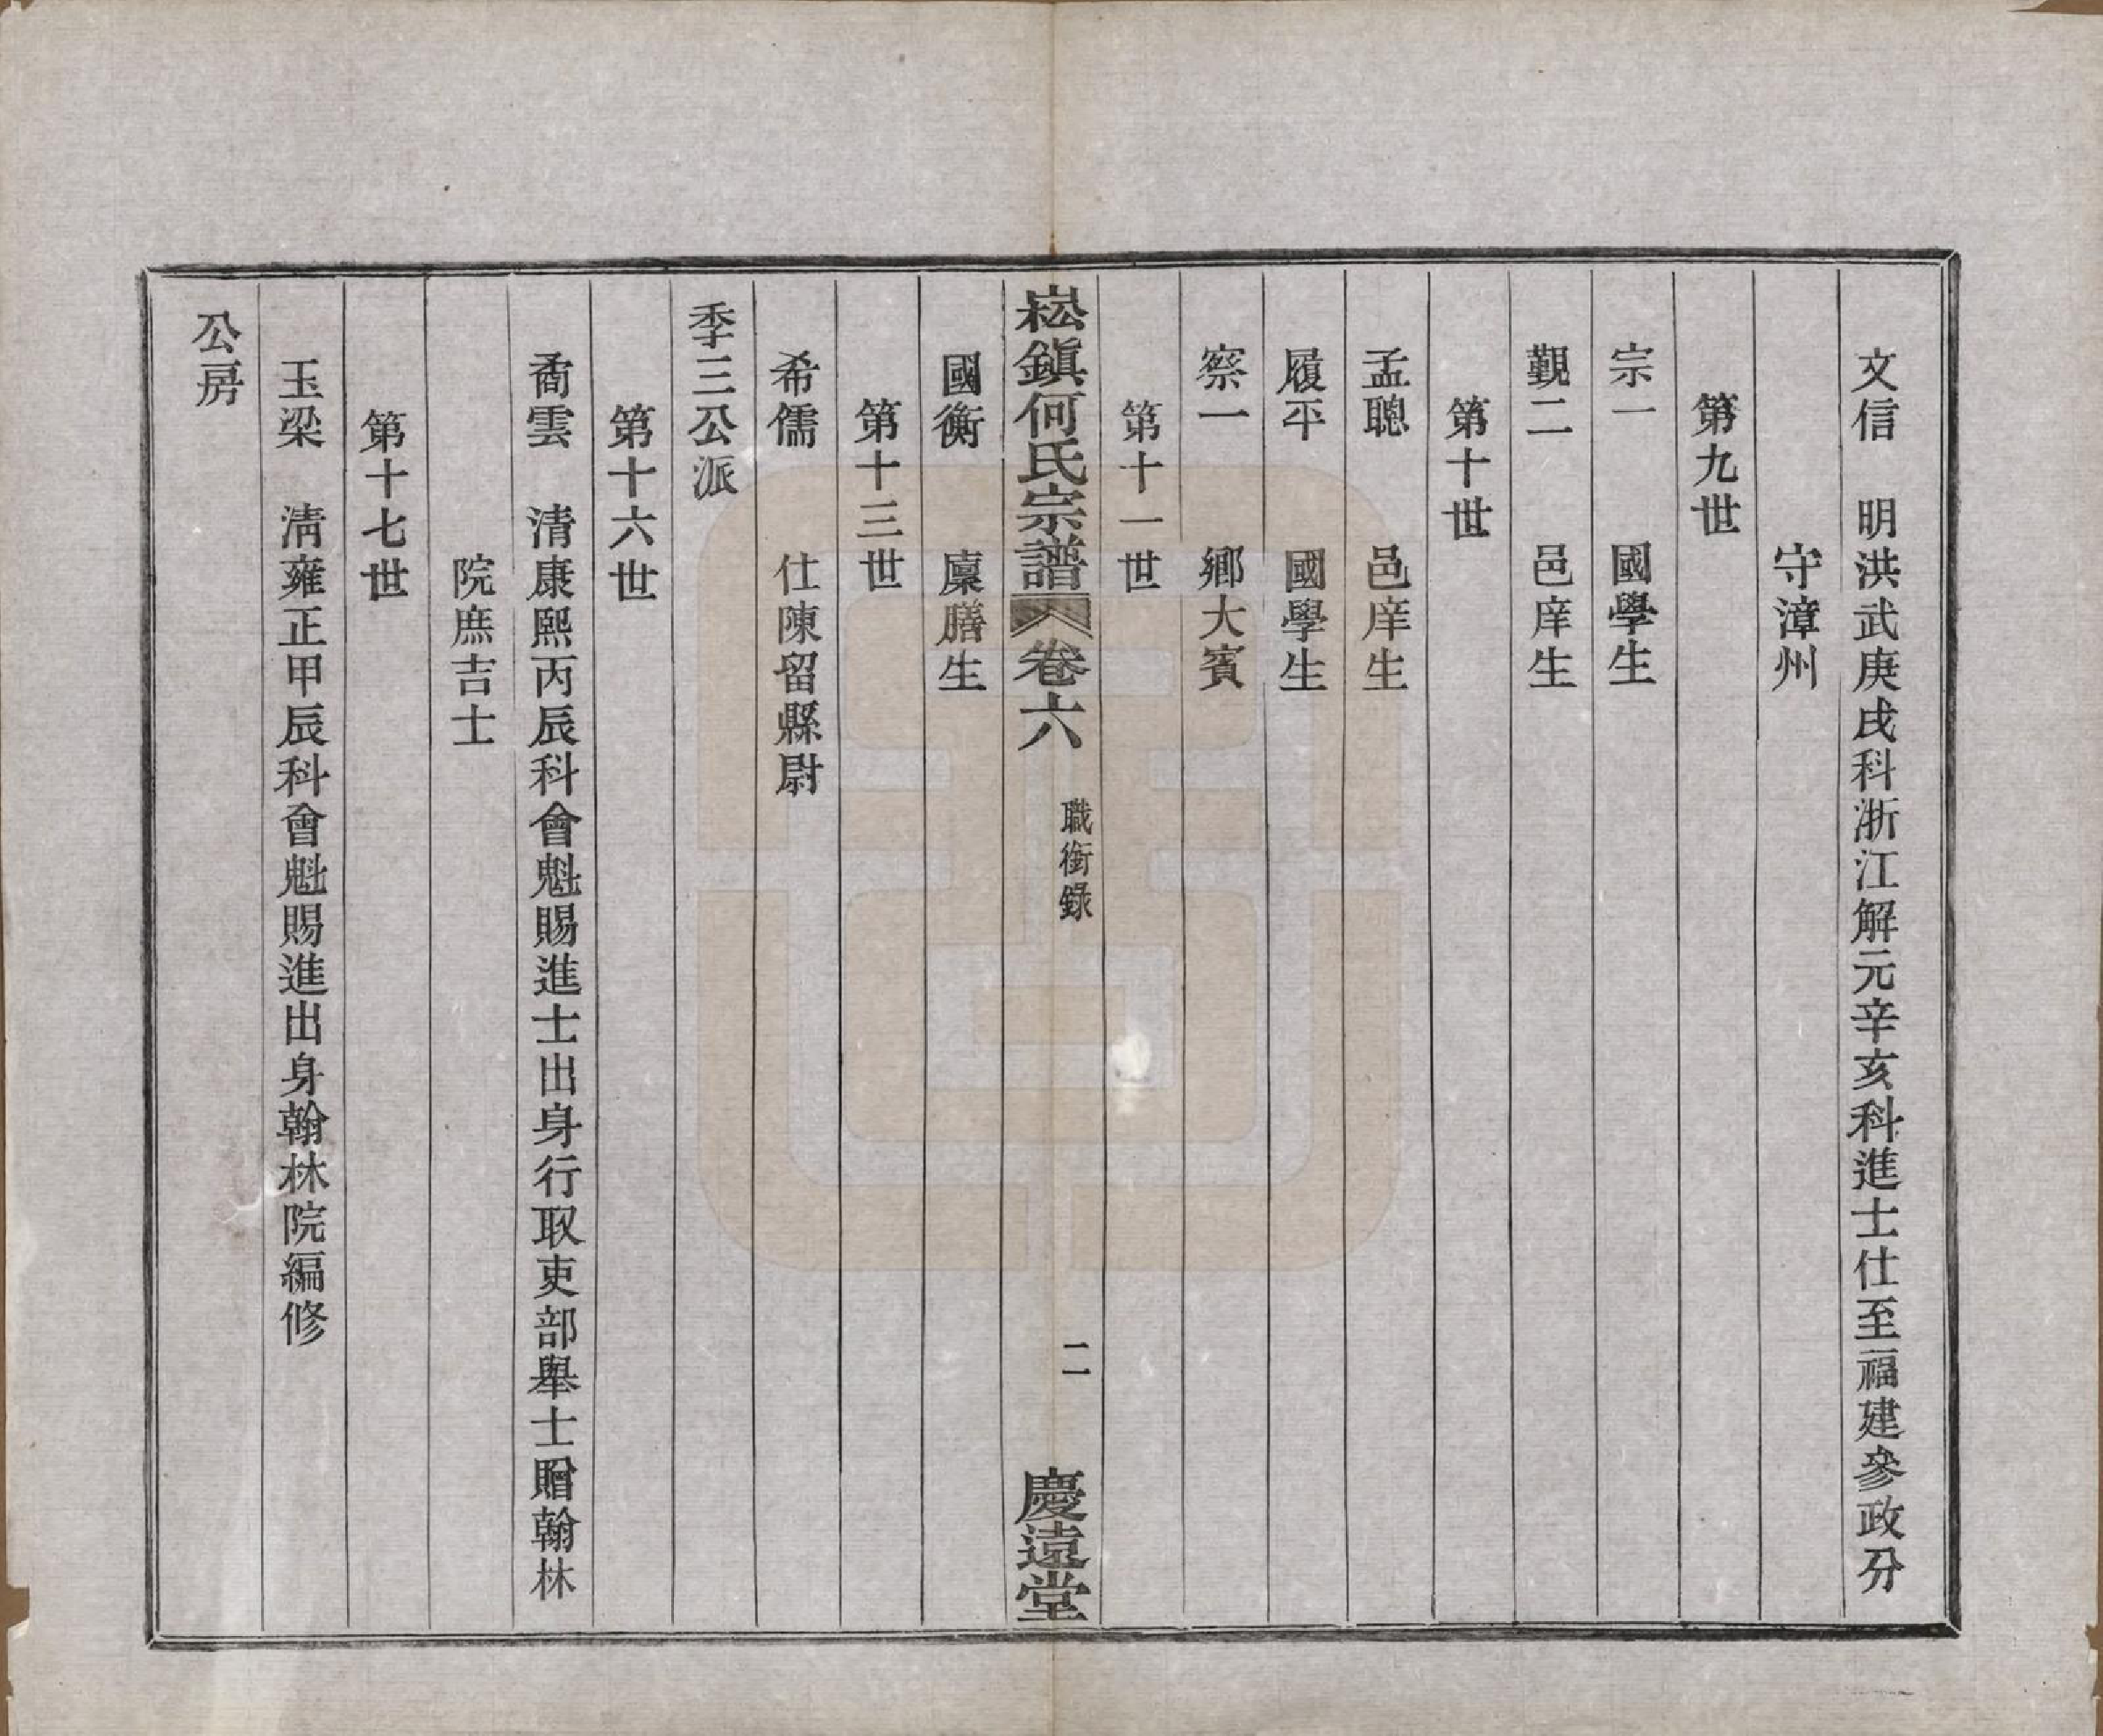 文信　明洪武庚戌科浙江解元辛亥科進士仕至福建參政分
守漳州
第九世
宗一　國學生
觀二　邑庠生
第十世
孟聰　邑庠生
履平　國學生
察一　鄉大賓
第十一世
崧鎮何氏宗譜　卷六　職銜錄　二　慶遠堂
國衡　廩膳生
第十三世
希儒　仕陳留縣尉
季三公派
第十六世
矞雲　清康熙丙辰科會魁賜進士出身行取吏部舉士贈翰林
院庶吉士
第十七世
玉梁　清雍正甲辰科會魁賜進出身翰林院編修
公房